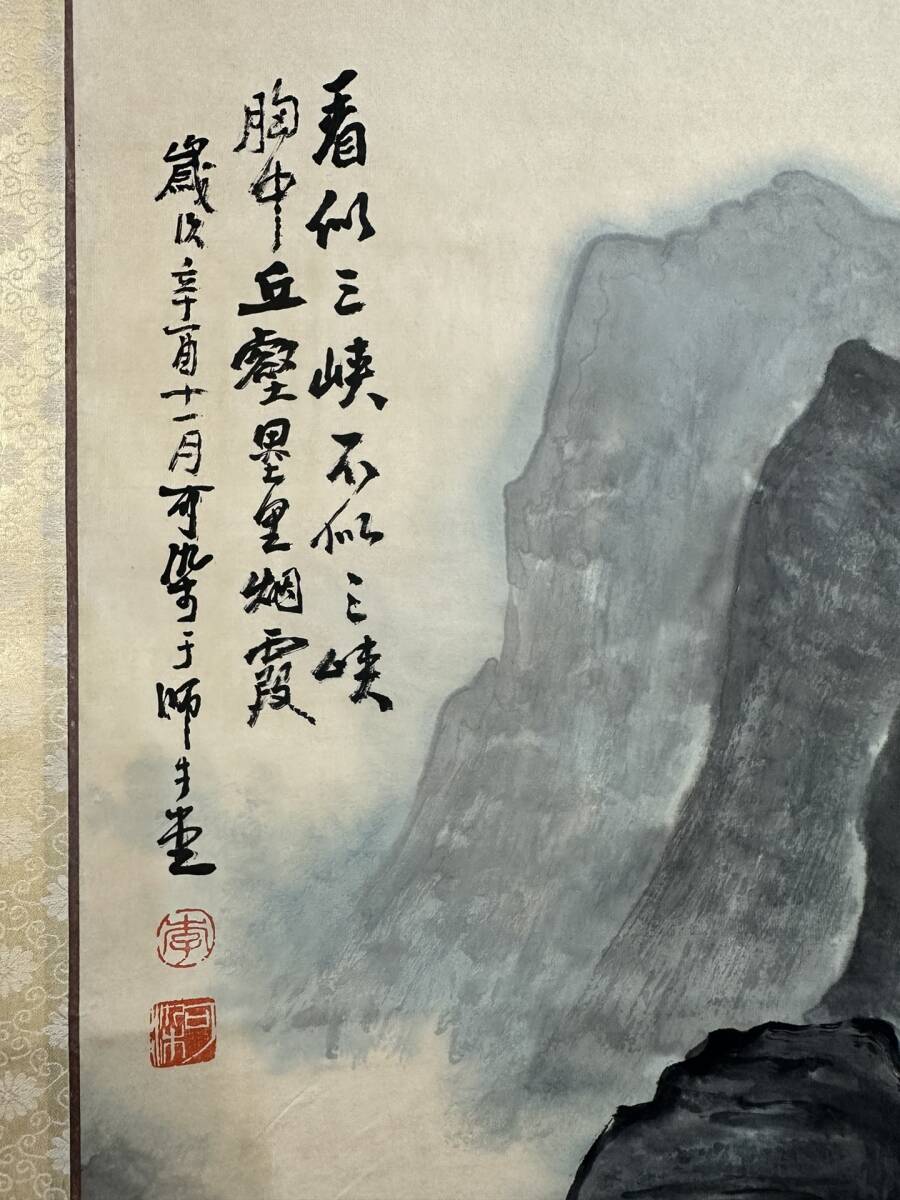 看似三峡不似三峡
胸中丘壑墨里烟霞
歲次辛酉十一月可染于师牛堂
李
可染